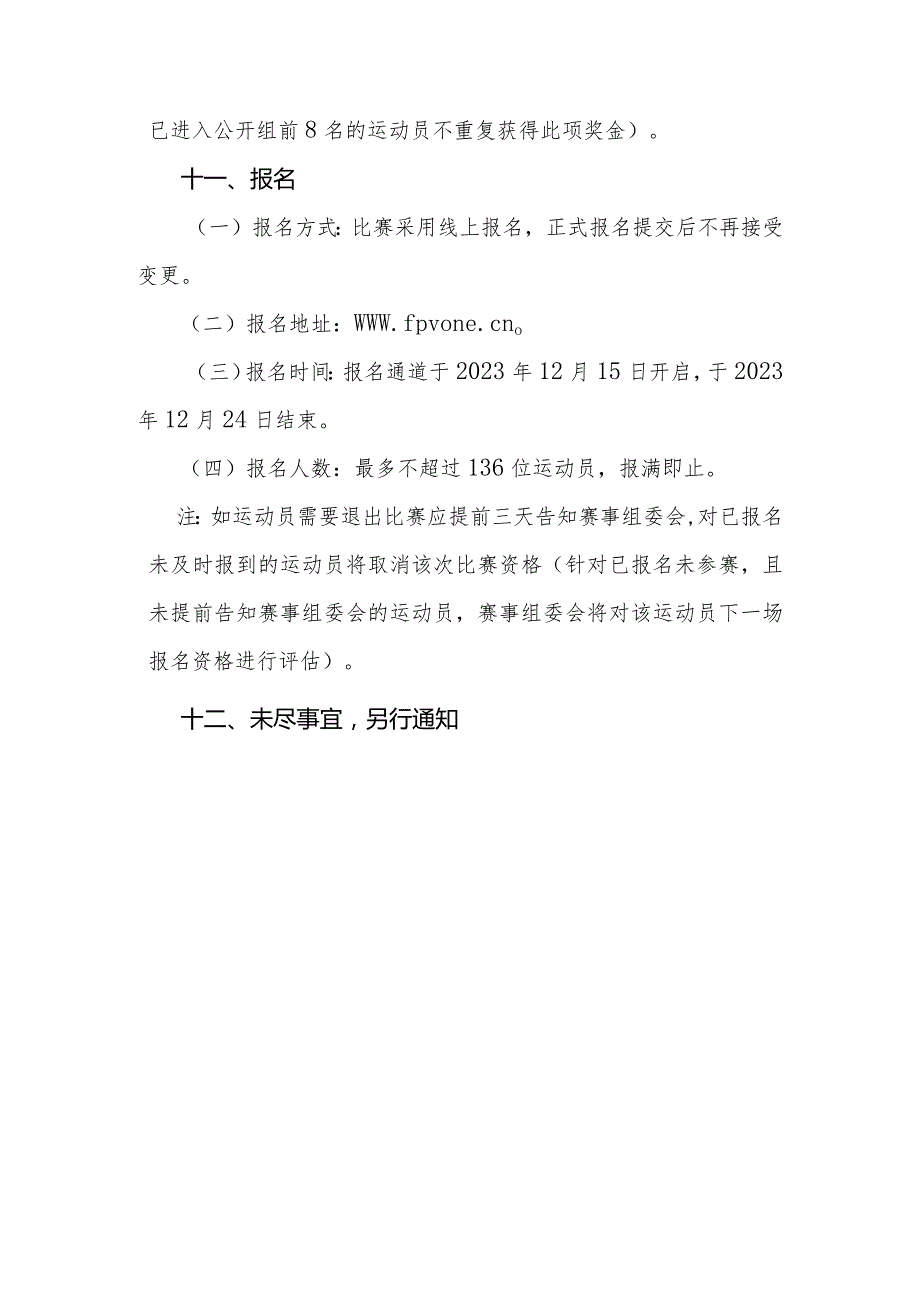 已进入公开组前8名的运动员不重复获得此项奖金）。
十一、报名
（一）报名方式：比赛采用线上报名，正式报名提交后不再接受
变更。
（二）报名地址：WWW.fpvone.cn。
（三）报名时间：报名通道于2023年12月15日开启，于2023
年12月24日结束。
（四）报名人数：最多不超过136位运动员，报满即止。
注：如运动员需要退出比赛应提前三天告知赛事组委会，对已报名
未及时报到的运动员将取消该次比赛资格（针对已报名未参赛，且
未提前告知赛事组委会的运动员，赛事组委会将对该运动员下一场
报名资格进行评估）。
十二、未尽事宜，另行通知